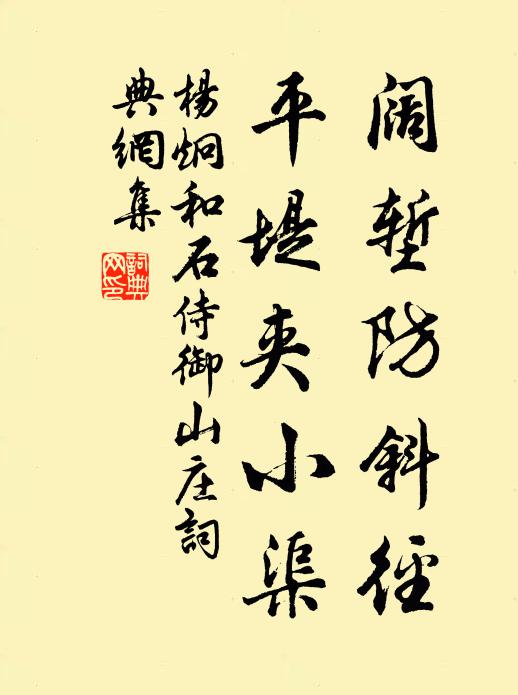 阔堑防斜径
平堤夹小渠
杨炯和石侍御山庄詞
典網集
詞典
网印